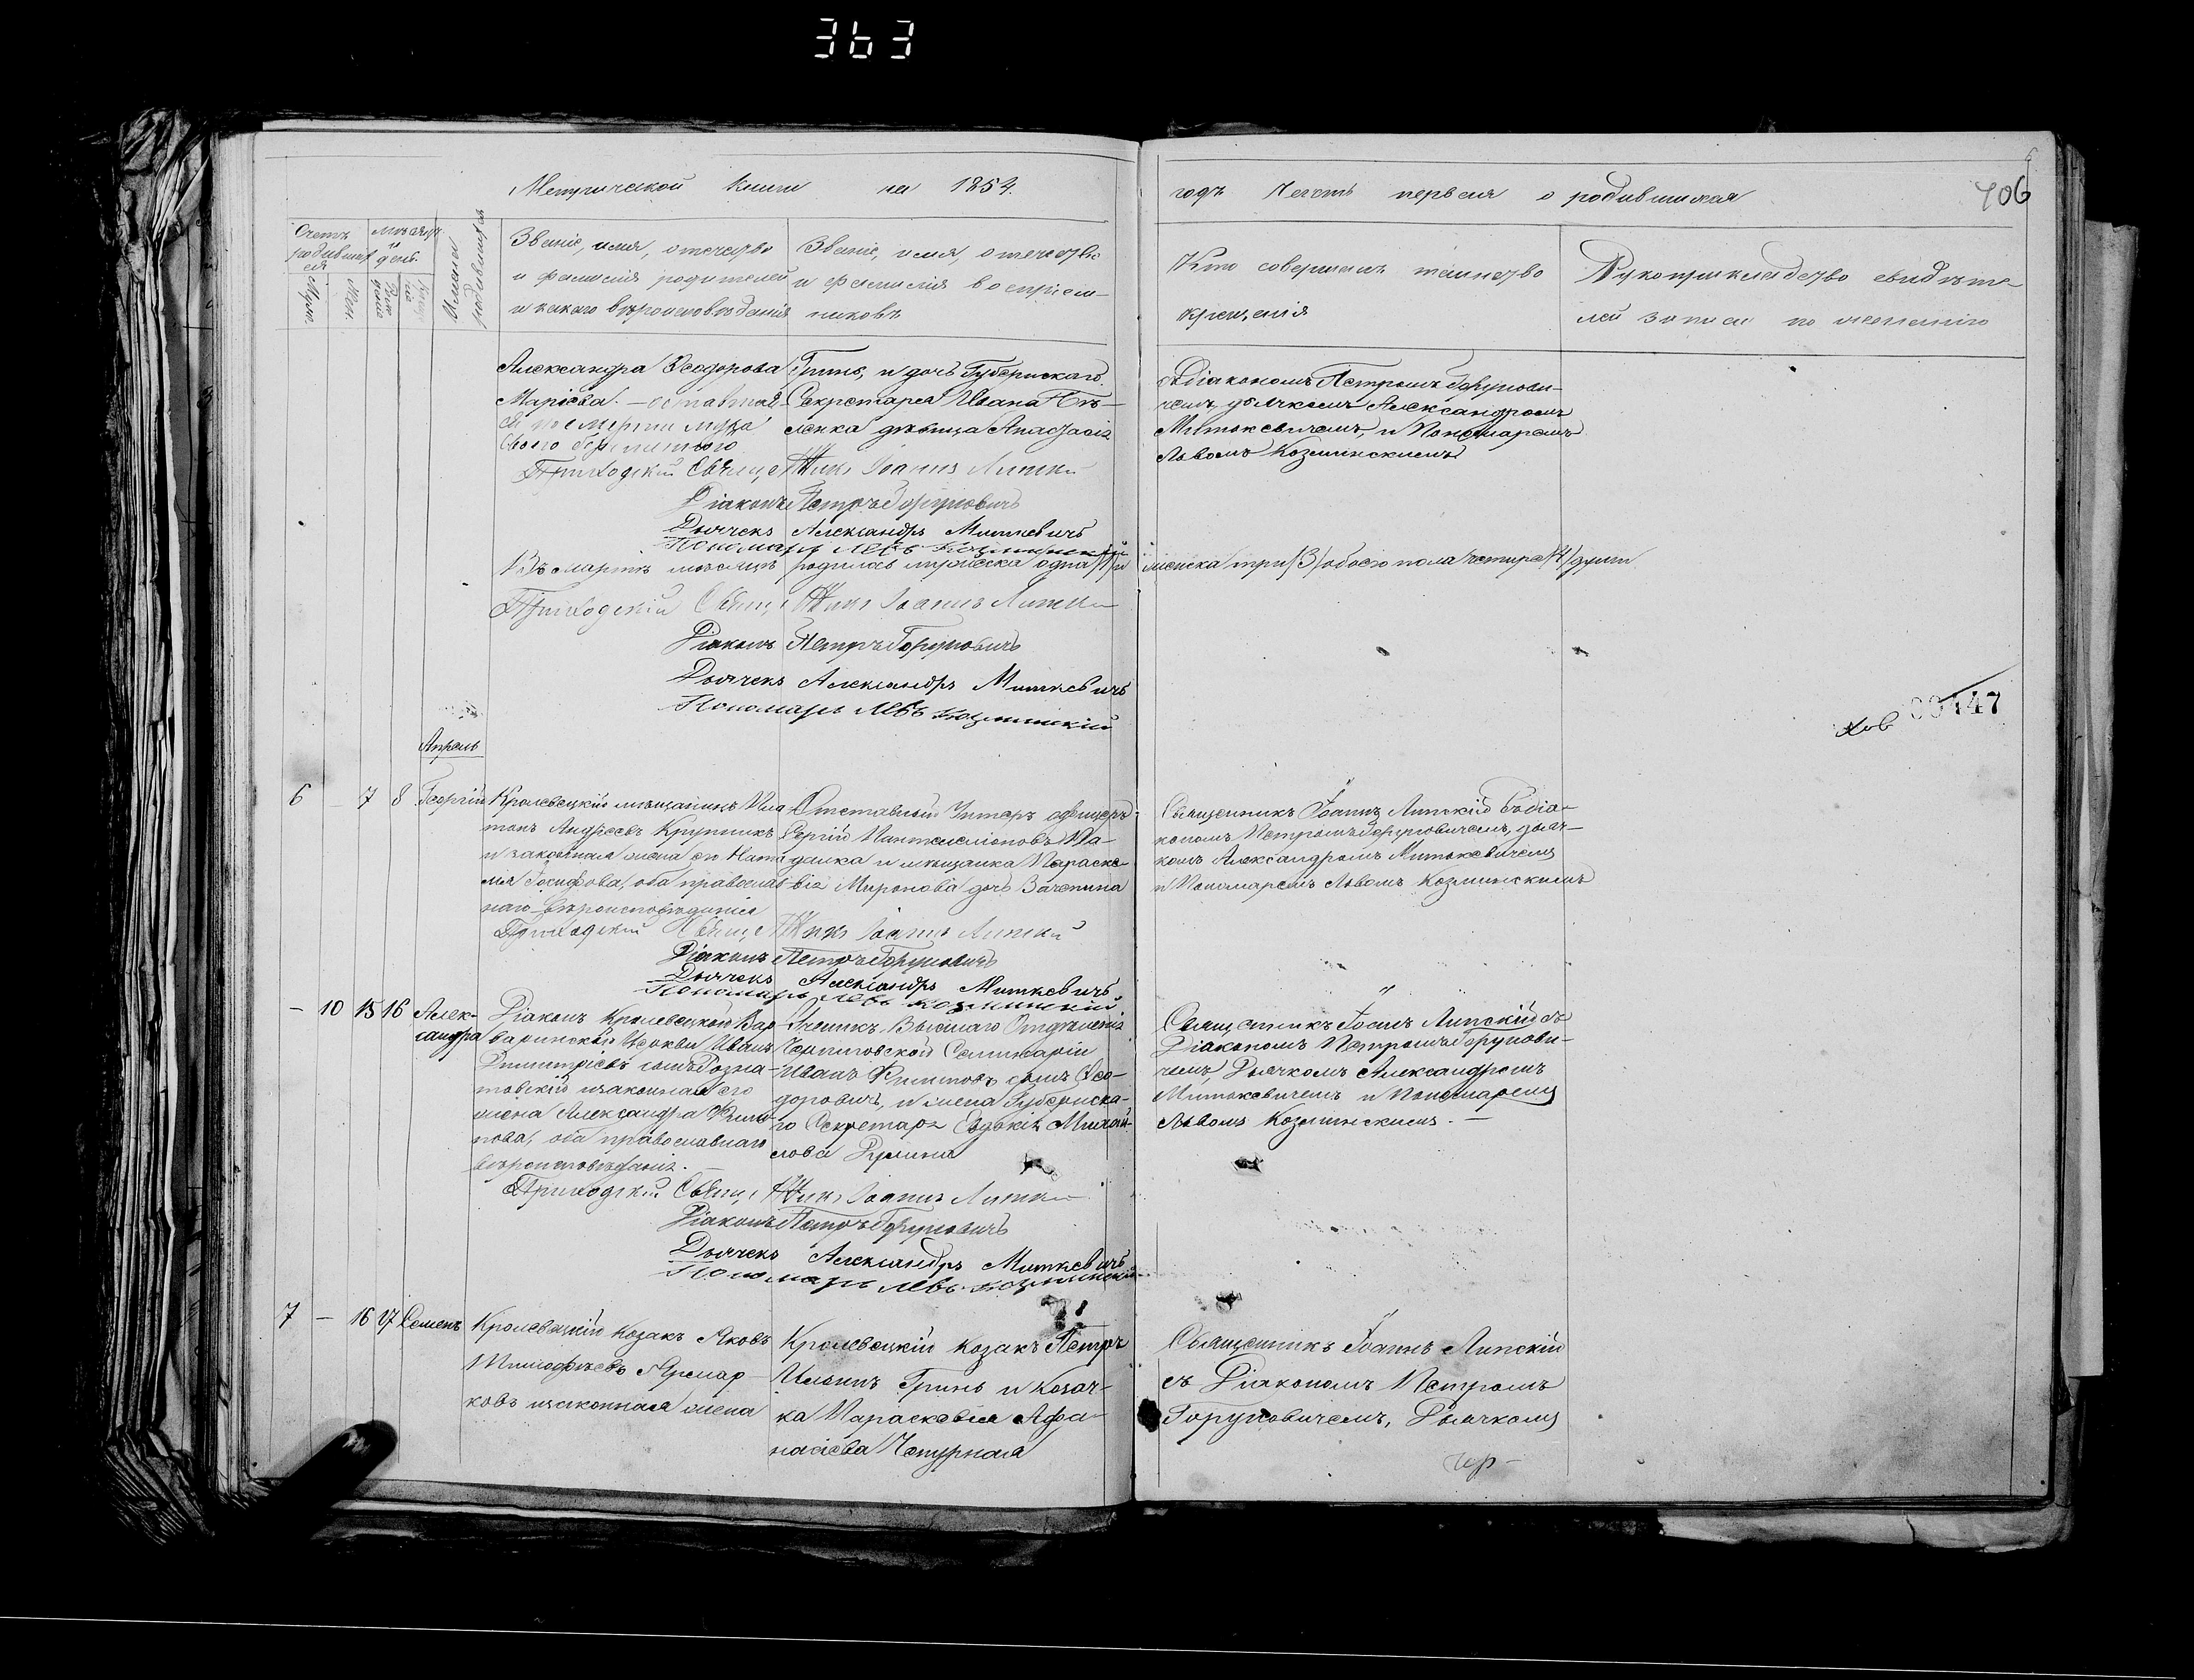 363
Метрической Книги на 1854.
годъ Часть первая о родившихся
406
Счетъ родившихся
Мужск.
Женск.
Мѣсяцъ и день
Имена родившихся
Званіе, имя, отечество
и фамилія родителей
и какаго вѣроисповѣданія
Званіе, имя, отечество
и фамилія воспріем-
никовъ
Кто совершалъ таинство
крещенія
Рукоприкладство свидѣте-
лей записи по желанію
Александра Ѳеодорова
Маріева. – оставшая-
ся по смерти мужа
своего
Гринь, и дочь Губернскаго
Секретаря Ивана Бѣ-
ленка дѣвица Анастасія
съ Діакономъ Петромъ Горунови-
чемъ, дьячкомъ Александромъ
Миткевичемъ, и Пономаремъ
Львомъ Козминскимъ
Приходскій Священникъ Іоаннъ Липскій
Діаконъ Петръ Горуновичъ
Дьячекъ Александръ Миткевичъ
Пономарь Левъ Козминскій
Въ мартѣ мѣсяцѣ родилось мужеска одна /1/ и женска три /3/ обоего пола четыре /4/ души
Приходскій Священникъ Іоаннъ Липскій
Діаконъ Петръ Горуновичъ
Дьячекъ Александръ Миткевичъ
Пономарь Левъ Козминскій
00447
Апрель
6 – 7 8 Георгій
Кролевецкій мѣщанинъ Пла-
тонъ Андреевъ Крупникъ
и законная жена его Ната-
лія Іосифова, оба православ-
наго вѣроисповѣданія
Отставной Унтеръ офицеръ
Сергій Пантелеіоновъ Ма-
далка и мѣщанка Параске-
вія Миронова дочь Зачепина
Священникъ Іоаннъ Липскій съ діа-
кономъ Петромъ Горуновичемъ, дьяч-
комъ Александромъ Миткевичемъ
и Пономаремъ Львомъ Козминскимъ
Приходскій Священникъ Іоаннъ Липскій
Діаконъ Петръ Горуновичъ
Дьячекъ Александръ Миткевичъ
Пономарь Левъ Козминскій
– 10 15 16 Алек-
сандра
Діаконъ Кролевецкой Вар-
варинской Церкви Иванъ
Димитріевъ сынъ Розна-
товскій и законная его
жена Александра Филип-
пова, оба православнаго
вѣроисповѣданія.
Ученикъ Высшаго Отдѣленія
Черниговской Семинаріи
Иванъ Филиповъ сынъ Ѳео-
доровичъ, и жена Губернска-
го Секретаря Евдокія Михай-
лова Румина
Священникъ Іоаннъ Липскій съ
Діакономъ Петромъ Горунови-
чемъ, Дьячкомъ Александромъ
Миткевичемъ и Пономаремъ
Львомъ Козминскимъ. –
Приходскій Священникъ Іоаннъ Липскій
Діаконъ Петръ Горуновичъ
Дьячекъ Александръ Миткевичъ
Пономарь Левъ Козминскій
7 – 16 17 Семенъ
Кролевецкій Козакъ Яковъ
Тимофѣевъ Ярмар-
ковъ и законная жена
Кролевецкій Козакъ Петръ
Ильинъ Гринь и Козач-
ка Параскевія Афа-
насіева Чепурная
Священникъ Іоаннъ Липскій
съ Діакономъ Петромъ
Горуновичемъ, Дьячкомъ